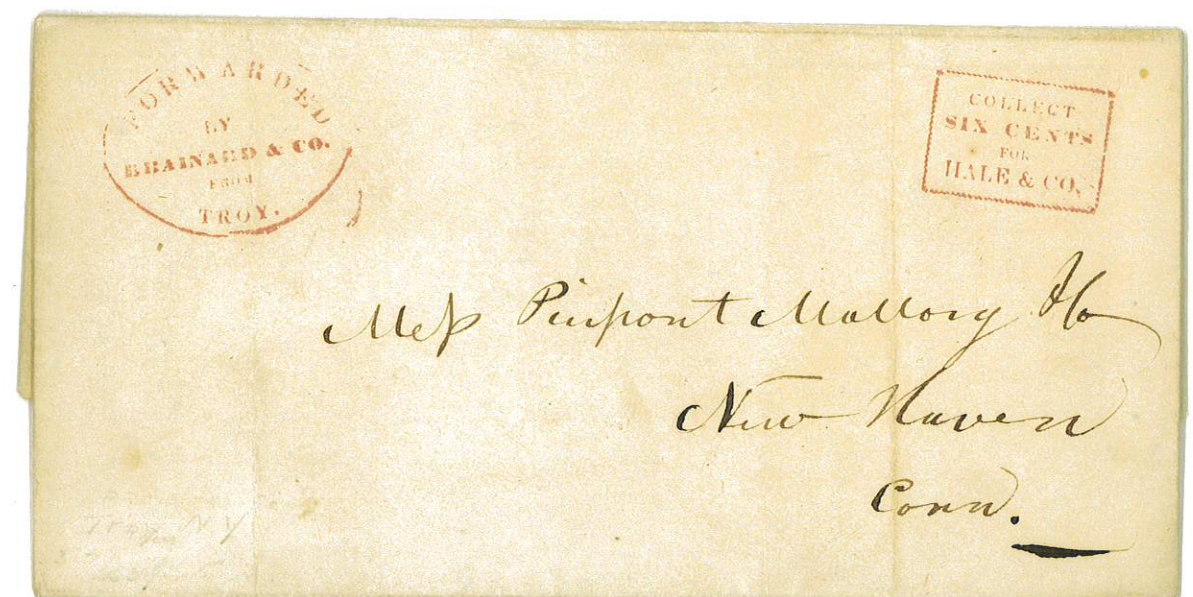 FORWARDED
BY
BRAINARD & CO.
FROM
TROY.
COLLECT
SIX CENTS
FOR
HALE & CO.
Mess Pierpont Mallory & Co
New Haven
Conn.
Troy NY